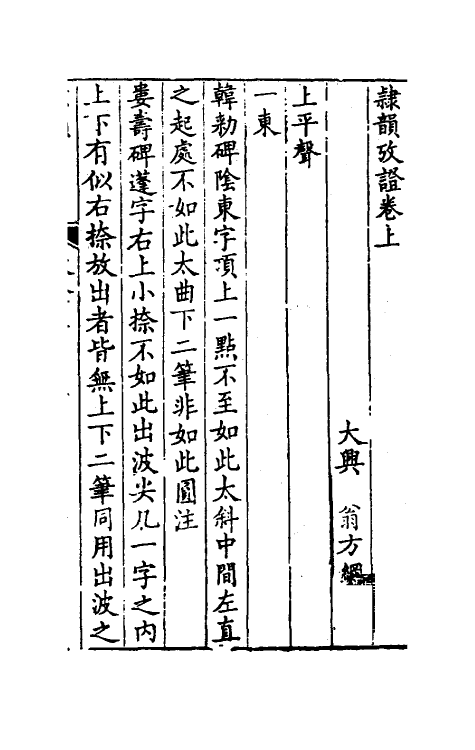 隷韻攷證卷上
大興　翁方綱
上平聲
一東
韓勑碑陰東字頂上一點不至如此太斜中間左直
之起處不如此太曲下二筆非如此圓注
婁壽碑蓬字右上小捺不如此出波尖凡一字之內
上下有似右捺放出者皆無上下二筆同用出波之